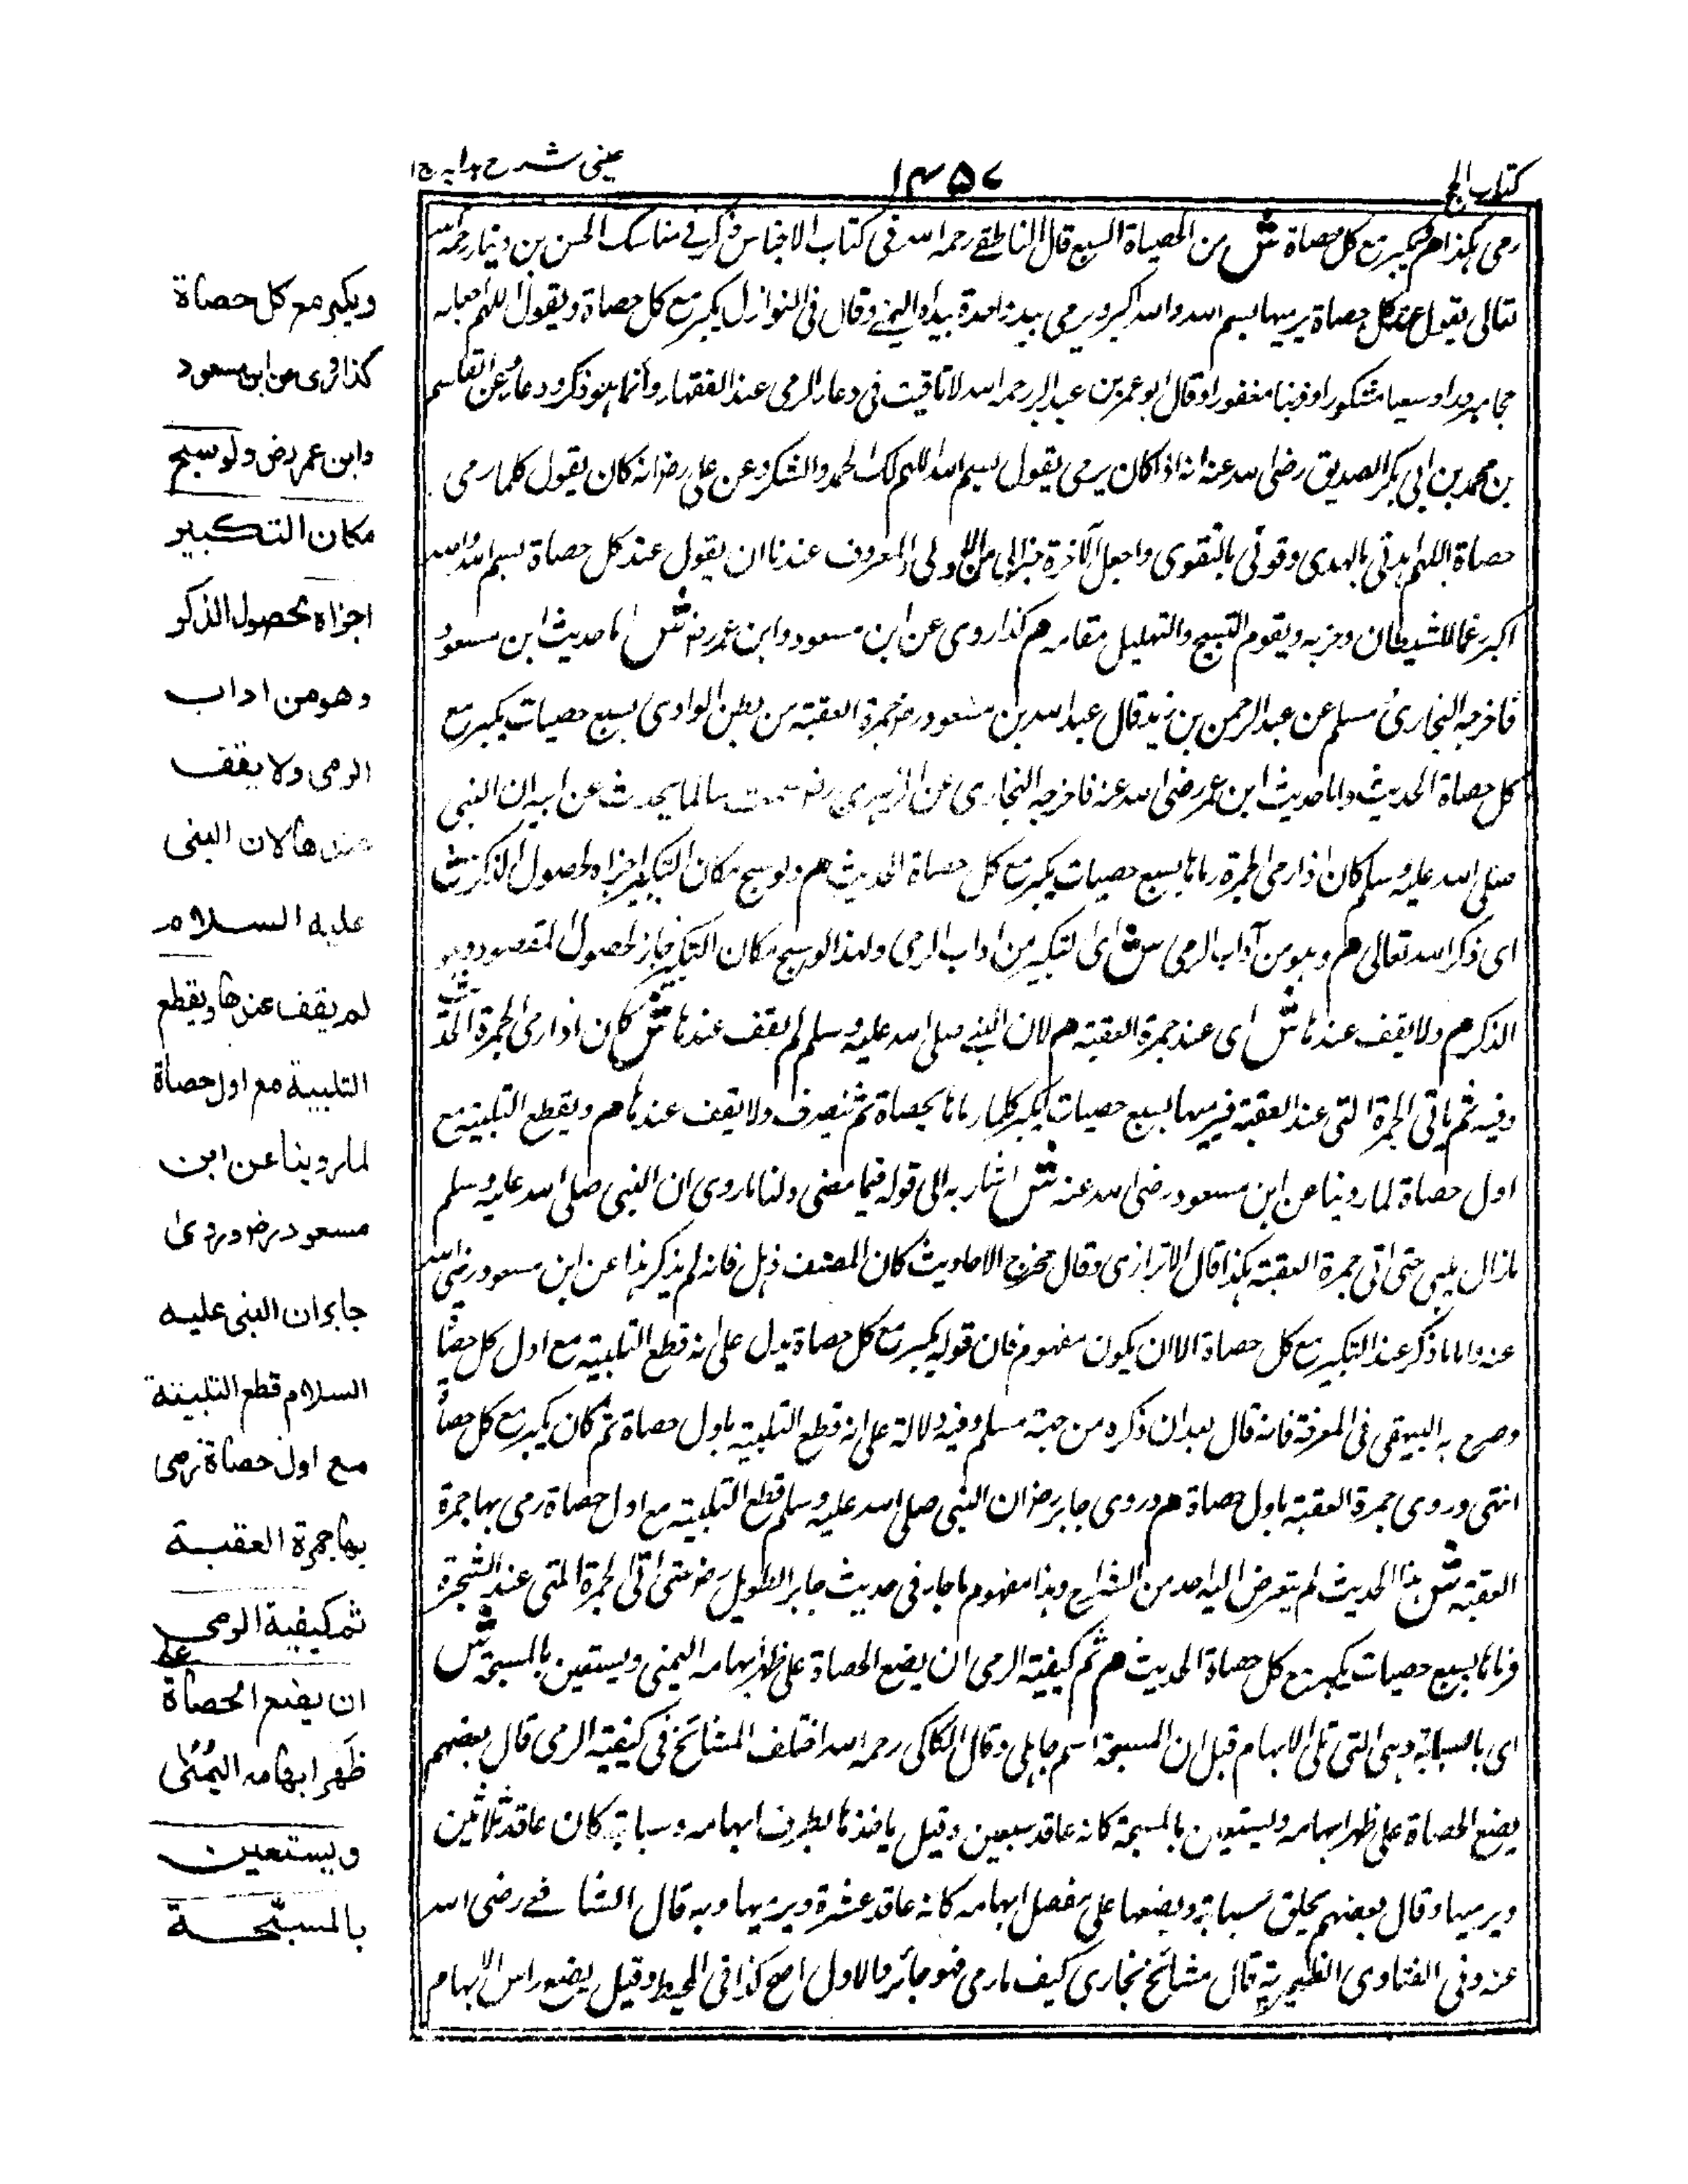 كتاب الحج
١٤٥٧
عينى شرح هدايه ج ١
رمى هكذا هم ويكبر مع كل حصاة ش من الحصياة السبع قال الناطفے رحمه الله فى كتاب الاجناس ذكر فے مناسك الحسن بن
تعالى يقول عند كل حصاة يرميها بسم الله والله اكبر ويرمى بيده اليمنے وقال فى النوازل يكبر مع كل حصاة ويقول اللهم اجعله
حجا مبرورا وسعيا مشكورا وذنبا مغفورا وقال ابو عمر بن عبد البر رحمه الله لا تاقيت فى دعاء الرمى عند الفقهاء وانما هو ذكر ودعاء وعن القاسم
بن محمد بن ابى بكر الصديق رضى الله عنه انه اذا كان يرمى يقول بسم الله اللهم لك الحمد والشكر وعن على رض انه كان يقول كلما رمى
حصاة اللهم اهدنى بالهدى وقونى بالتقوى واجعل الآخرة خيرا لى من الاولى والمعروف عندنا ان يقول عند كل حصاة بسم الله والله
اكبر رغما للشيطان وحزبه ويقوم التسبيح والتهليل مقامه هم كذا روى عن ابن مسعود وابن عمر رض ش اما حديث ابن مسعود
فاخرجه البخارى ومسلم عن عبد الرحمن بن يزيد قال عبد الله بن مسعود رض جمرة العقبة من بطن الوادى بسبع حصيات يكبر مع
كل حصاة الحديث واما حديث ابن عمر رضى الله عنه فاخرجه البخارى عن الزهرى رض سمعت سالما يحدث عن ابيه ان النبى
صلى الله عليه وسلم كان اذا رمى الجمرة رماها بسبع حصيات يكبر مع كل حصاة الحديث هم ولو سبح مكان التكبير اجزاه لحصول الذكر ش
اى ذكر الله تعالى هم وهو من آداب الرمى ش اى التكبير من اداب الرمى ولهذا لو سبح مكان التكبير جاز لحصول المقصود وهو
الذكر هم ولا يقف عندها ش اى عند جمرة العقبة هم لان النبے صلى الله عليه وسلم لم يقف عندها ش كان اذا رمى الجمرة
وفيه ثم ياتى الجمرة التى عند العقبة فيرميها بسبع حصيات يكبر كلما رماها بحصاة ثم ينصرف ولا يقف عندها هم ويقطع التلبية مع
اول حصاة لما روينا عن ابن مسعود رضى الله عنه ش اشار به الى قوله فيما مضى ولنا ما روى ان النبى صلى الله عليه وسلم
مازال يلبى حتى اتى جمرة العقبة هكذا قال الاترازى وقال مخرج الاحاديث كان المصنف ذهل فانه لم يذكر هذا عن ابن مسعود رضى الله
عنه وانما ذكر عنه التكبير مع كل حصاة الا ان يكون مفهوم فان قوله يكبر مع كل حصاة يدل على انه قطع التلبية مع اول كل حصاة
وصرح به البيهقى فى المعرفة فانه قال بعد ان ذكره من جهة مسلم وفيه دلالة على انه قطع التلبية باول حصاة ثم كان يكبر مع كل حصاة
انتهى وروى جمرة العقبة باول حصاة هم وروى جابر رض ان النبى صلى الله عليه وسلم قطع التلبية مع اول حصاة رمى بها جمرة
العقبة ش هذا الحديث لم يتعرض اليه احد من الشراح وهذا مفهوم ما جاء فى حديث جابر الطويل رض حتى اتى الجمرة التى عند الشجرة
فرماها بسبع حصيات يكبر مع كل حصاة الحديث هم ثم كيفية الرمى ان يضع الحصاة على ظهر ابهامه اليمنى ويستعين بالمسبحة ش
اى بالسبابة وهى التى تلى الابهام قيل ان المسبحة اسم جاهلى وقال الكاكى رحمه الله اختلف المشائخ فى كيفية الرمى قال بعضهم
يضع الحصاة على ظهر ابهامه ويستعين بالمسبحة كانه عاقد سبعين وقيل ياخذها بطرف ابهامه وسبابته كان عاقد ثلاثين
ويرميها وقال بعضهم يحلق سبابته ويضعها على مفصل ابهامه كانه عاقد عشرة ويرميها وبه قال الشافعے رضى الله
عنه وفى الفتاوى الظهيرية قال مشائخ بخارى كيف ما رمى فهو جائز والاول اصح كذا فى المحيط وقيل يضع راس الابهام
ويكبر مع كل حصاة
كذا روى عن ابن مسعود
وابن عمر رض ولو سبح
مكان التكبير
اجزاه لحصول الذكر
وهو من اداب
الرمى ولا يقف
عندها لان النبى
عليه السلام
لم يقف عندها ويقطع
التلبية مع اول حصاة
لما روينا عن ابن
مسعود رض وروى
جابر ان النبى عليه
السلام قطع التلبية
مع اول حصاة رمى
بها جمرة العقبة
ثم كيفية الرمى
ان يضع الحصاة على
ظهر ابهامه اليمنى
ويستعين
بالمسبحة